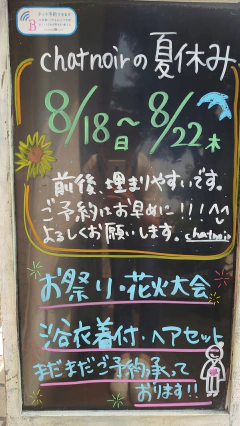 chatnoirの夏休み
8/18日〜8/22木
前後、埋まりやすいです。
ご予約はお早めに!!!^^
よろしくお願いします。chatnoir
お祭り・花火大会
浴衣着付・ヘアセット
まだまだご予約承って
おります!!